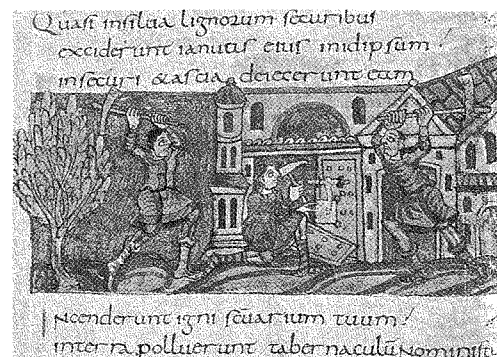 Quasi insilua lignorum securibus
exciderunt ianuas eius inidipsum
insecuri & ascia deiecerunt eam
Incenderunt igni scuarium tuum
interra polluerunt tabernaculū nominis